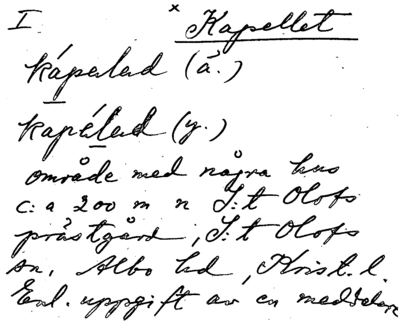 I × Kapellet
kápelad (ä.)
kapélad (y.)
område med några hus
c:a 200 m n S:t Olofs
prästgård, S:t Olofs
sn, Albo hd, Krist. l.
Enl. uppgift av en meddelare